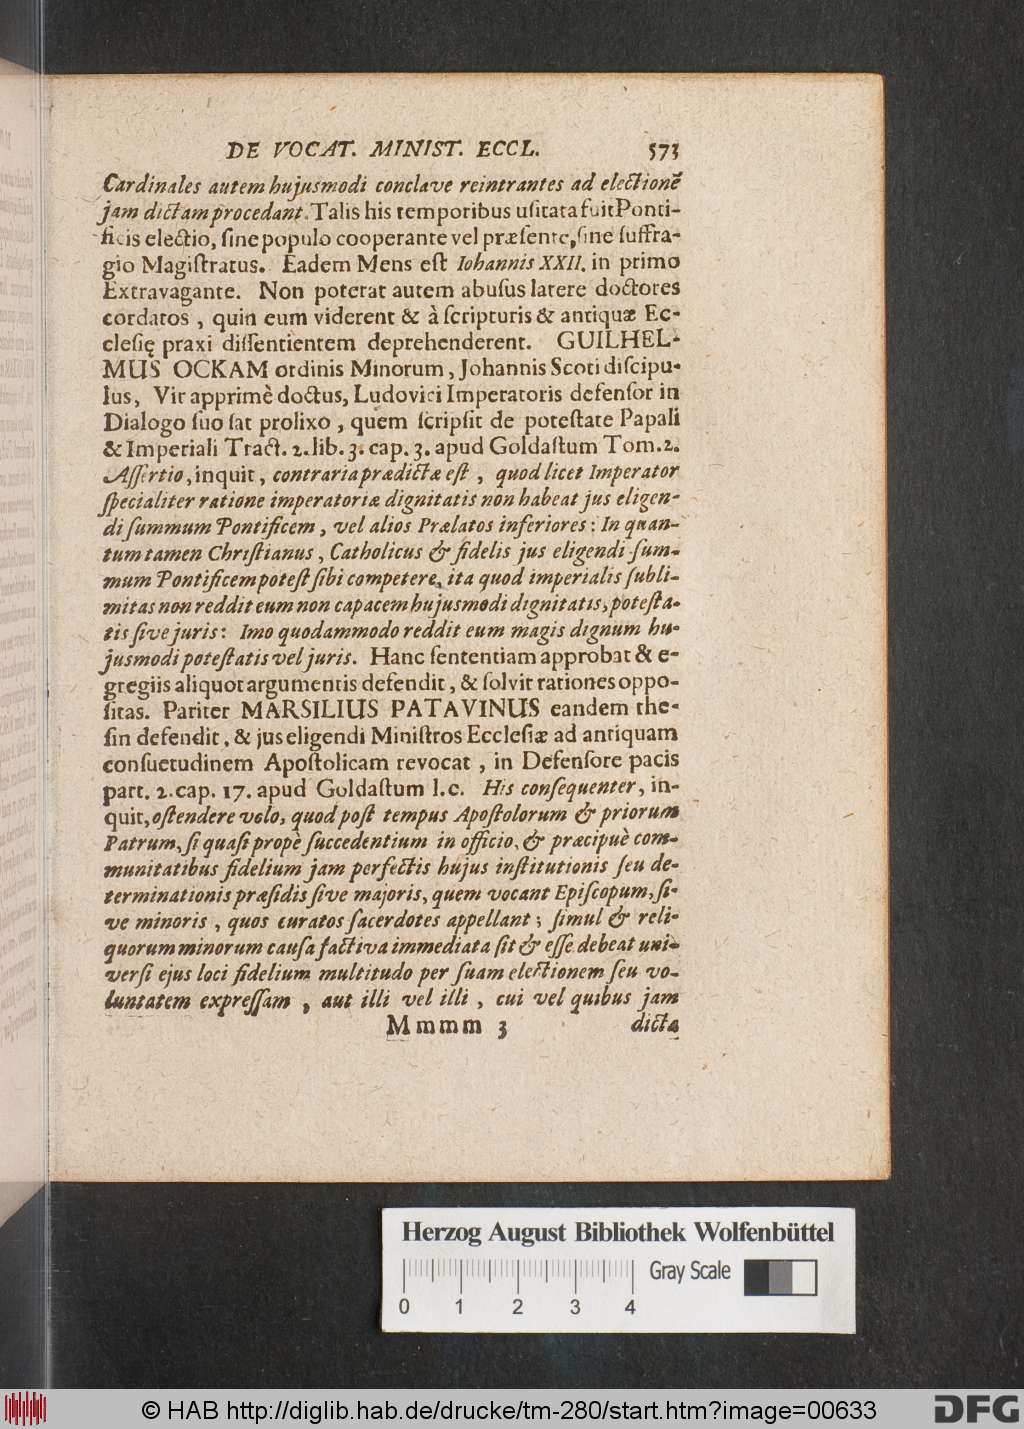 DE VOCAT. MINIST. ECCL. 573
Cardinales autem hujusmodi conclave reintrantes ad electionē
jam dictam procedant. Talis his temporibus uſitata fuit Ponti-
ficis electio, ſine populo cooperante vel præſente, ſine ſuffra-
gio Magiſtratus. Eadem Mens eſt Iohannis XXII. in primo
Extravagante. Non poterat autem abuſus latere doctores
cordatos, quin eum viderent & à ſcripturis & antiquæ Ec-
cleſię praxi diſſentientem deprehenderent. GUILHEL-
MUS OCKAM ordinis Minorum, Johannis Scoti diſcipu-
lus, Vir apprimè doctus, Ludovici Imperatoris defenſor in
Dialogo ſuo ſat prolixo, quem ſcripſit de poteſtate Papali
& Imperiali Tract. 2. lib. 3. cap. 3. apud Goldaſtum Tom. 2.
Aſſertio, inquit, contraria prædictæ eſt, quod licet Imperator
ſpecialiter ratione imperatoriæ dignitatis non habeat jus eligen-
di ſummum Pontificem, vel alios Prælatos inferiores: In quan-
tum tamen Chriſtianus, Catholicus & fidelis jus eligendi ſum-
mum Pontificem poteſt ſibi competere, ita quod imperialis ſubli-
mitas non reddit eum non capacem hujusmodi dignitatis, poteſta-
tis ſive juris: Imo quodammodo reddit eum magis dignum hu-
jusmodi poteſtatis vel juris. Hanc ſententiam approbat & e-
gregiis aliquot argumentis defendit, & ſolvit rationes oppo-
ſitas. Pariter MARSILIUS PATAVINUS eandem the-
ſin defendit, & jus eligendi Miniſtros Eccleſiæ ad antiquam
conſuetudinem Apoſtolicam revocat, in Defenſore pacis
part. 2. cap. 17. apud Goldaſtum l. c. His conſequenter, in-
quit, oſtendere volo, quod poſt tempus Apoſtolorum & priorum
Patrum, ſi quaſi propè ſuccedentium in officio, & præcipuè com-
munitatibus fidelium jam perfectis hujus inſtitutionis ſeu de-
terminationis præſidis ſive majoris, quem vocant Epiſcopum, ſi-
ve minoris, quos curatos ſacerdotes appellant; ſimul & reli-
quorum minorum cauſa factiva immediata ſit & eſſe debeat uni-
verſi ejus loci fidelium multitudo per ſuam electionem ſeu vo-
luntatem expreſſam, aut illi vel illi, cui vel quibus jam
Mmmm 3 dicta
Herzog August Bibliothek Wolfenbüttel
Gray Scale
0 1 2 3 4
© HAB http://diglib.hab.de/drucke/tm-280/start.htm?image=00633
DFG